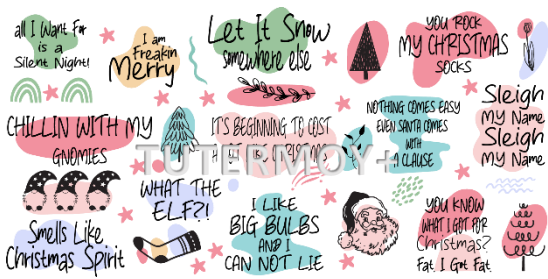 all I Want For
is a
Silent Night!
I am
Freakin
Merry
Let It Snow
somewhere else
YOU ROCK
MY CHRISTMAS
SOCKS
CHILLIN WITH MY
GNOMIES
IT'S BEGINNING TO COST
A LOT LIKE CHRISTMAS
NOTHING COMES EASY
EVEN SANTA COMES
WITH
A CLAUSE
Sleigh
My Name
Sleigh
My Name
TUTERMOY+
Smells Like
Christmas Spirit
WHAT THE
ELF?!
I LIKE
BIG BULBS
AND I
CAN NOT LIE
YOU KNOW
WHAT I GOT FOR
Christmas?
Fat. I Got Fat